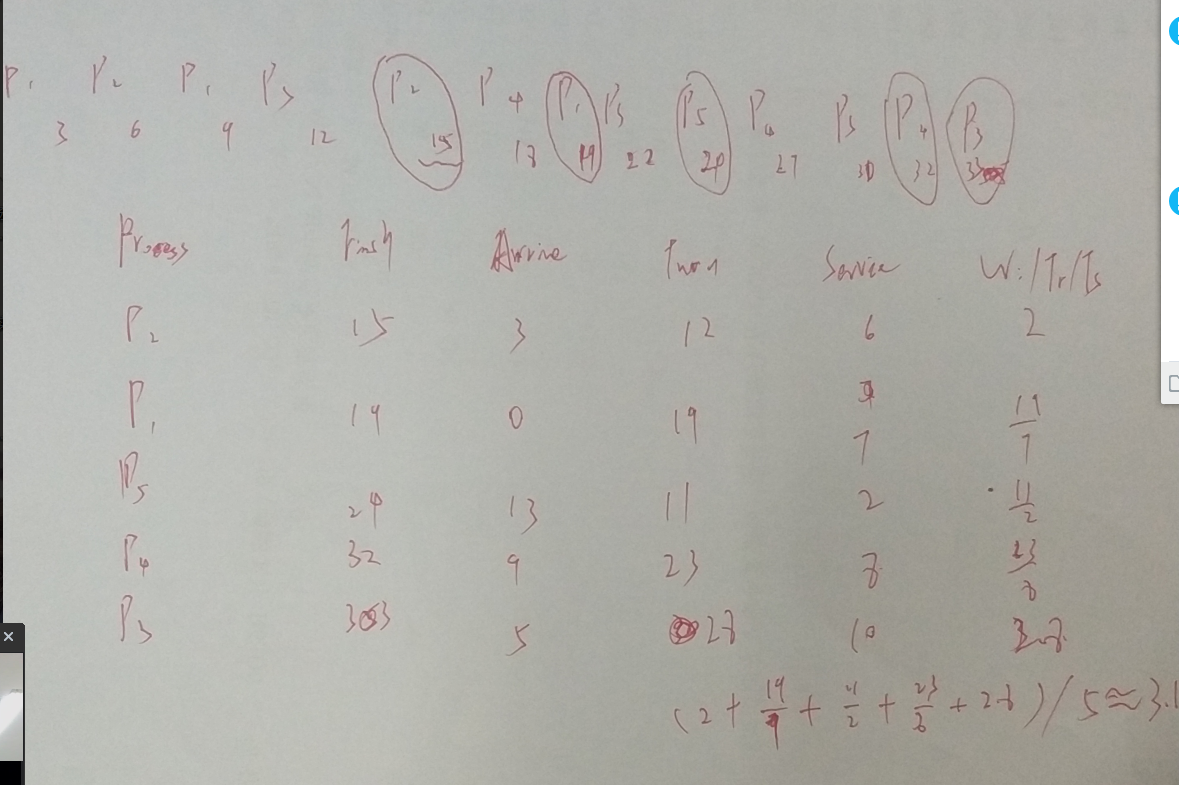 P1 P2 P1 P3 P2 P4 P1 P3 P5 P4 P3 P4 P3
3 6 9 12 15 18 19 22 24 27 30 32 33
Process Finish Arrive Turn Service Wi/Tr/Ts
P2 15 3 12 6 2
P1 19 0 19 7 19/7
P5 24 13 11 2 11/2
P4 32 9 23 8 23/8
P3 33 5 28 10 2.8
(2 + 19/7 + 11/2 + 23/8 + 2.8) / 5 ≈ 3.1